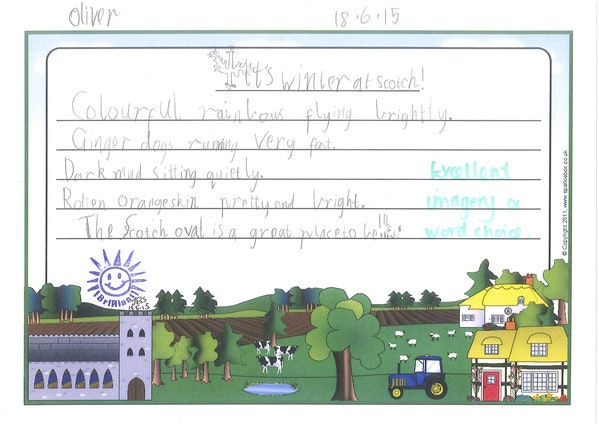 Oliver
18.6.15
It's winter at scotch!
Colourful rainbows flying brightly.
Ginger dogs running very fast.
Dark mud sitting quietly.
Rotten orangeskin pretty and bright.
The Scotch oval is a great place to be!!!
Excellent
imagery &
word choice.
Brilliant
© Copyright 2011, www.sparklebox.co.uk